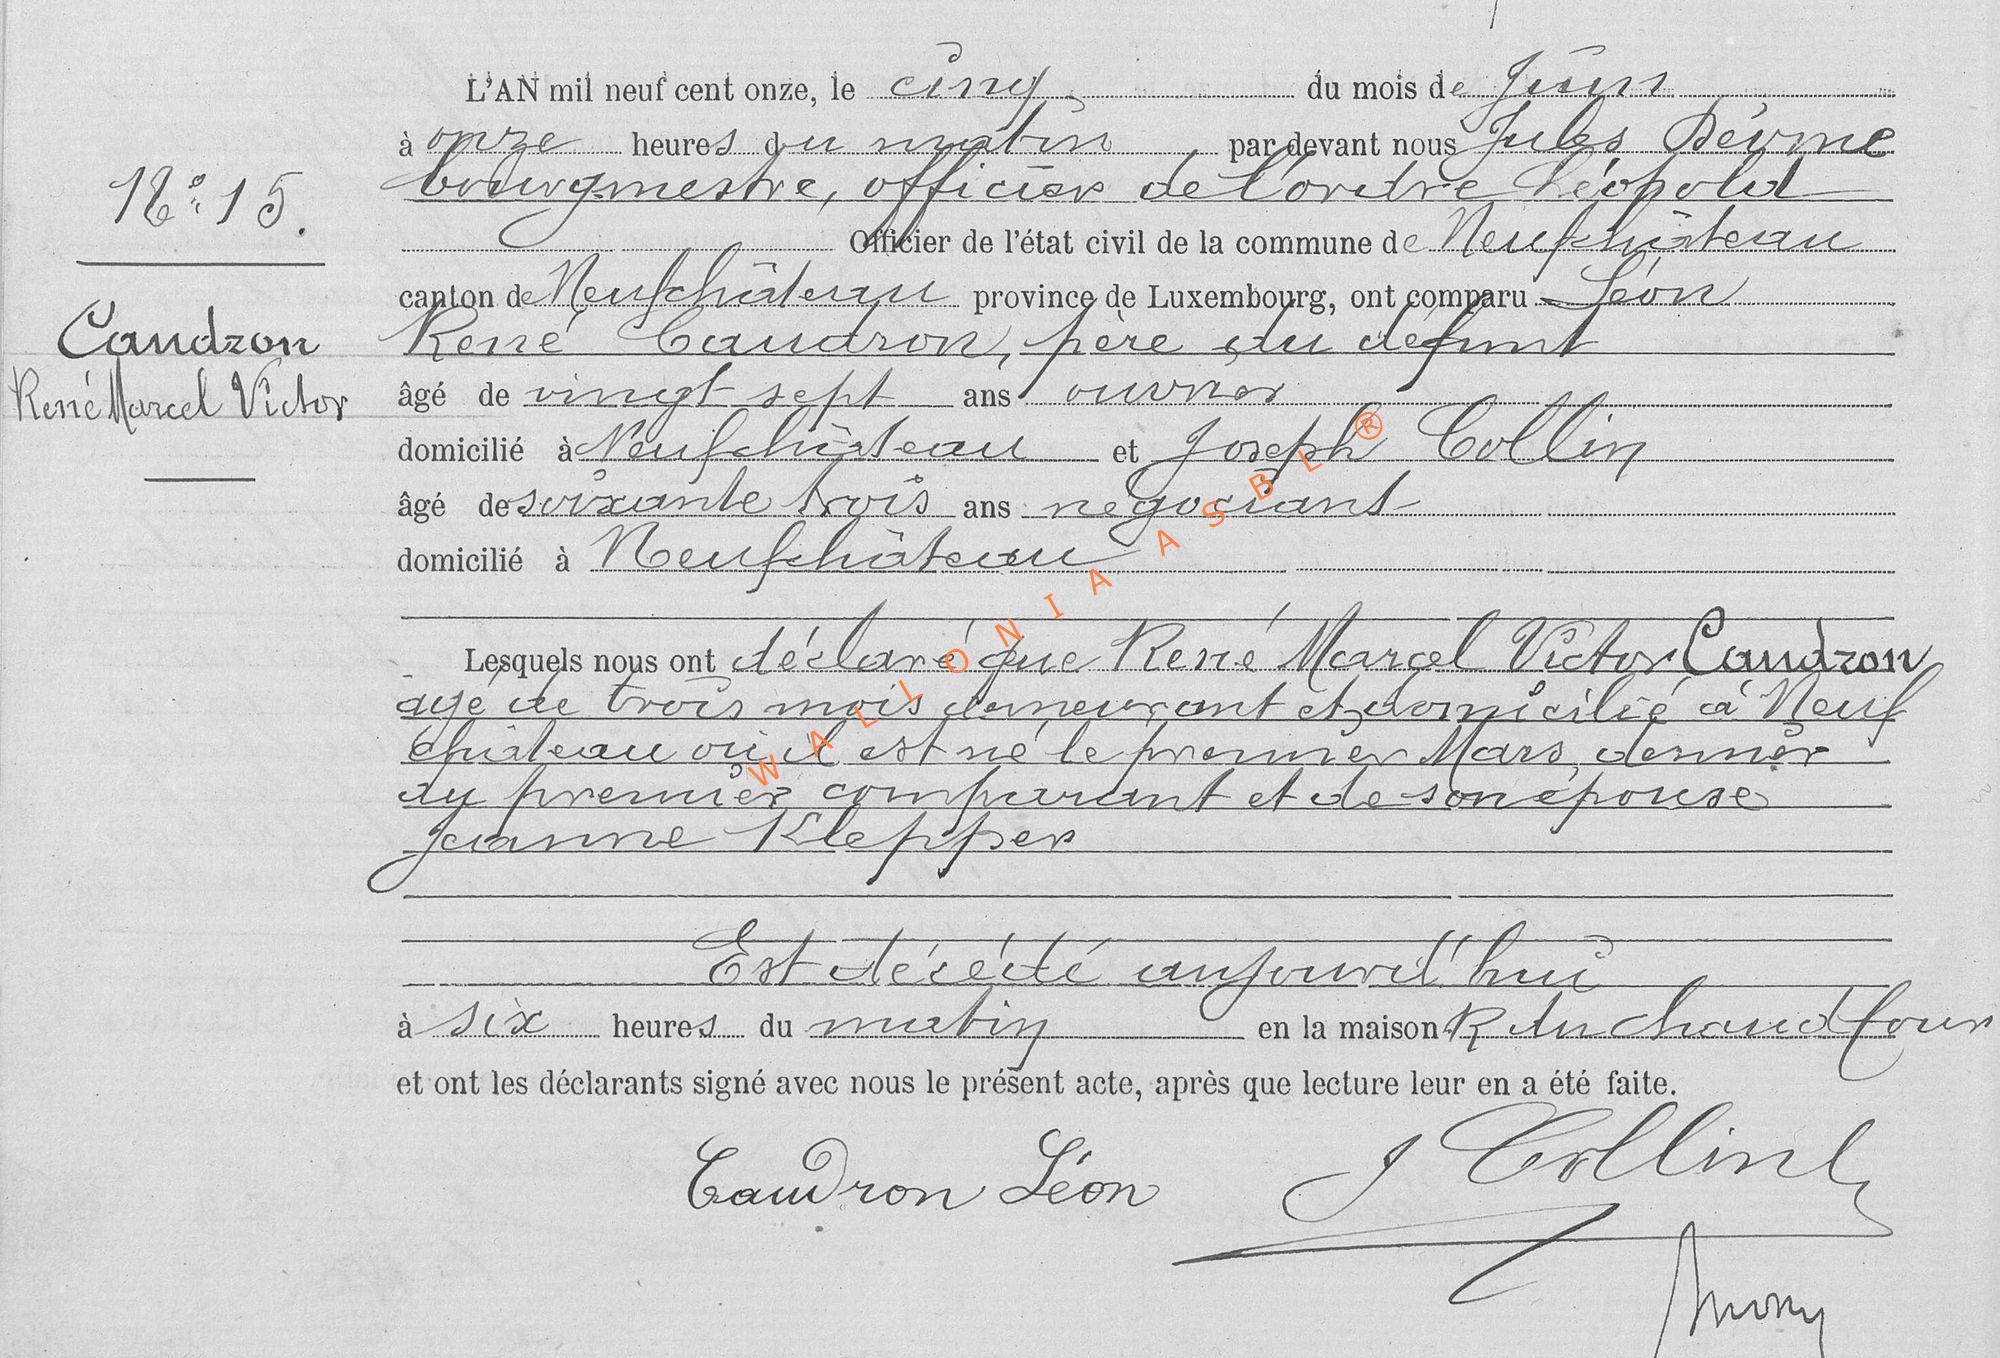 L'AN mil neuf cent onze, le cinq du mois de Juin
à onze heures du matin par devant nous Jules
bourgmestre, officier de l'ordre Léopold
N° 15.
Officier de l'état civil de la commune de Neufchâteau
canton de Neufchâteau province de Luxembourg, ont comparu Léon
Caudron
René Caudron, père du défunt
René Marcel Victor
âgé de vingt sept ans ouvrier
domicilié à Neufchâteau et Joseph Collin
âgé de soixante trois ans négociant
domicilié à Neufchâteau
WALLONIA ASBL®
Lesquels nous ont déclaré que René Marcel Victor Caudron
âgé de trois mois demeurant et domicilié à Neuf
château où il est né le premier Mars dernier
du premier comparant et de son épouse
Jeanne Klepper
Est décédé aujourd'hui
à six heures du matin en la maison R du Chaud four
et ont les déclarants signé avec nous le présent acte, après que lecture leur en a été faite.
Caudron Léon J Collin